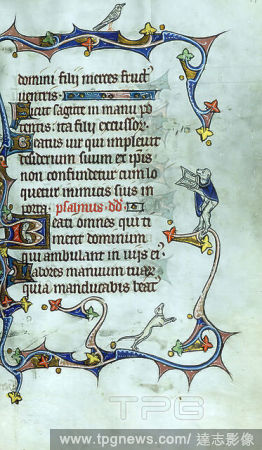 domini filij merces fruct
uentris.
Sicut sagitte in manu po
tentis: ita filij excussor.
Beatus uir qui impleuit
desiderium suum ex ipis
non confundetur cum lo
quetur inimicis suis in
porta. psalmus dd
Beati omnes qui ti
ment dominum
qui ambulant in uijs ei.
Labores manuum tuar
quia manducabis beat
TPG
www.tpgnews.com/達志影像